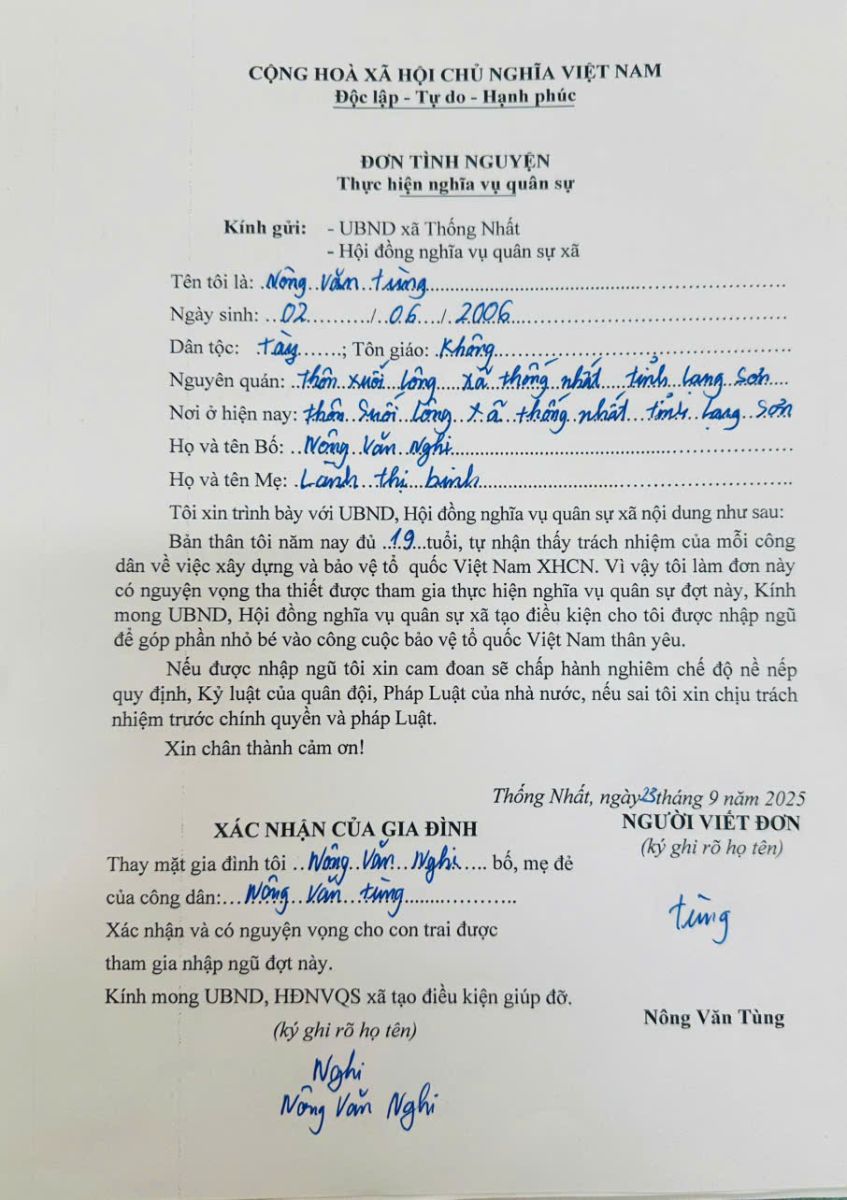 CỘNG HOÀ XÃ HỘI CHỦ NGHĨA VIỆT NAM
Độc lập - Tự do - Hạnh phúc
ĐƠN TÌNH NGUYỆN
Thực hiện nghĩa vụ quân sự
Kính gửi: - UBND xã Thống Nhất
- Hội đồng nghĩa vụ quân sự xã
Tên tôi là: Nông Văn Tùng
Ngày sinh: 02 / 06 / 2006
Dân tộc: Tày; Tôn giáo: Không
Nguyên quán: Thôn xuối lông xã thống nhất tỉnh Lạng Sơn
Nơi ở hiện nay: Thôn Suối lông xã thống nhất tỉnh Lạng Sơn
Họ và tên Bố: Nông Văn Nghi
Họ và tên Mẹ: Lành thị binh
Tôi xin trình bày với UBND, Hội đồng nghĩa vụ quân sự xã nội dung như sau:
Bản thân tôi năm nay đủ 19 tuổi, tự nhận thấy trách nhiệm của mỗi công
dân về việc xây dựng và bảo vệ tổ quốc Việt Nam XHCN. Vì vậy tôi làm đơn này
có nguyện vọng tha thiết được tham gia thực hiện nghĩa vụ quân sự đợt này, Kính
mong UBND, Hội đồng nghĩa vụ quân sự xã tạo điều kiện cho tôi được nhập ngũ
để góp phần nhỏ bé vào công cuộc bảo vệ tổ quốc Việt Nam thân yêu.
Nếu được nhập ngũ tôi xin cam đoan sẽ chấp hành nghiêm chế độ nề nếp
quy định, Kỷ luật của quân đội, Pháp Luật của nhà nước, nếu sai tôi xin chịu trách
nhiệm trước chính quyền và pháp Luật.
Xin chân thành cảm ơn!
Thống Nhất, ngày 23 tháng 9 năm 2025
XÁC NHẬN CỦA GIA ĐÌNH
NGƯỜI VIẾT ĐƠN
(ký ghi rõ họ tên)
Thay mặt gia đình tôi Nông Văn Nghi bố, mẹ đẻ
của công dân: Nông Văn tùng
Xác nhận và có nguyện vọng cho con trai được
tham gia nhập ngũ đợt này.
Kính mong UBND, HĐNVQS xã tạo điều kiện giúp đỡ.
(ký ghi rõ họ tên)
Nghi
Nông Văn Nghi
Tùng
Nông Văn Tùng